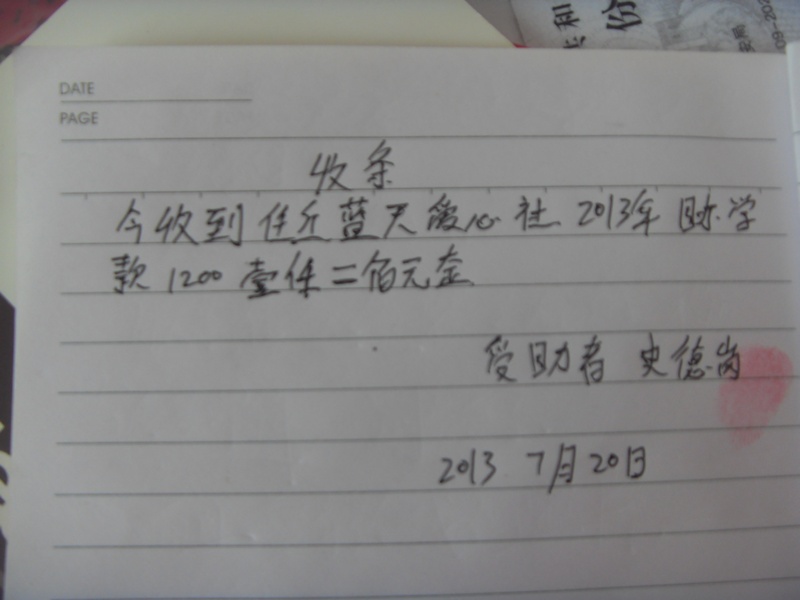 和
份
09-20
DATE
PAGE
收条
今收到任丘蓝天爱心社 2013年 助学
款 1200 壹仟二佰元金
受助者 史德岗
2013 7月20日